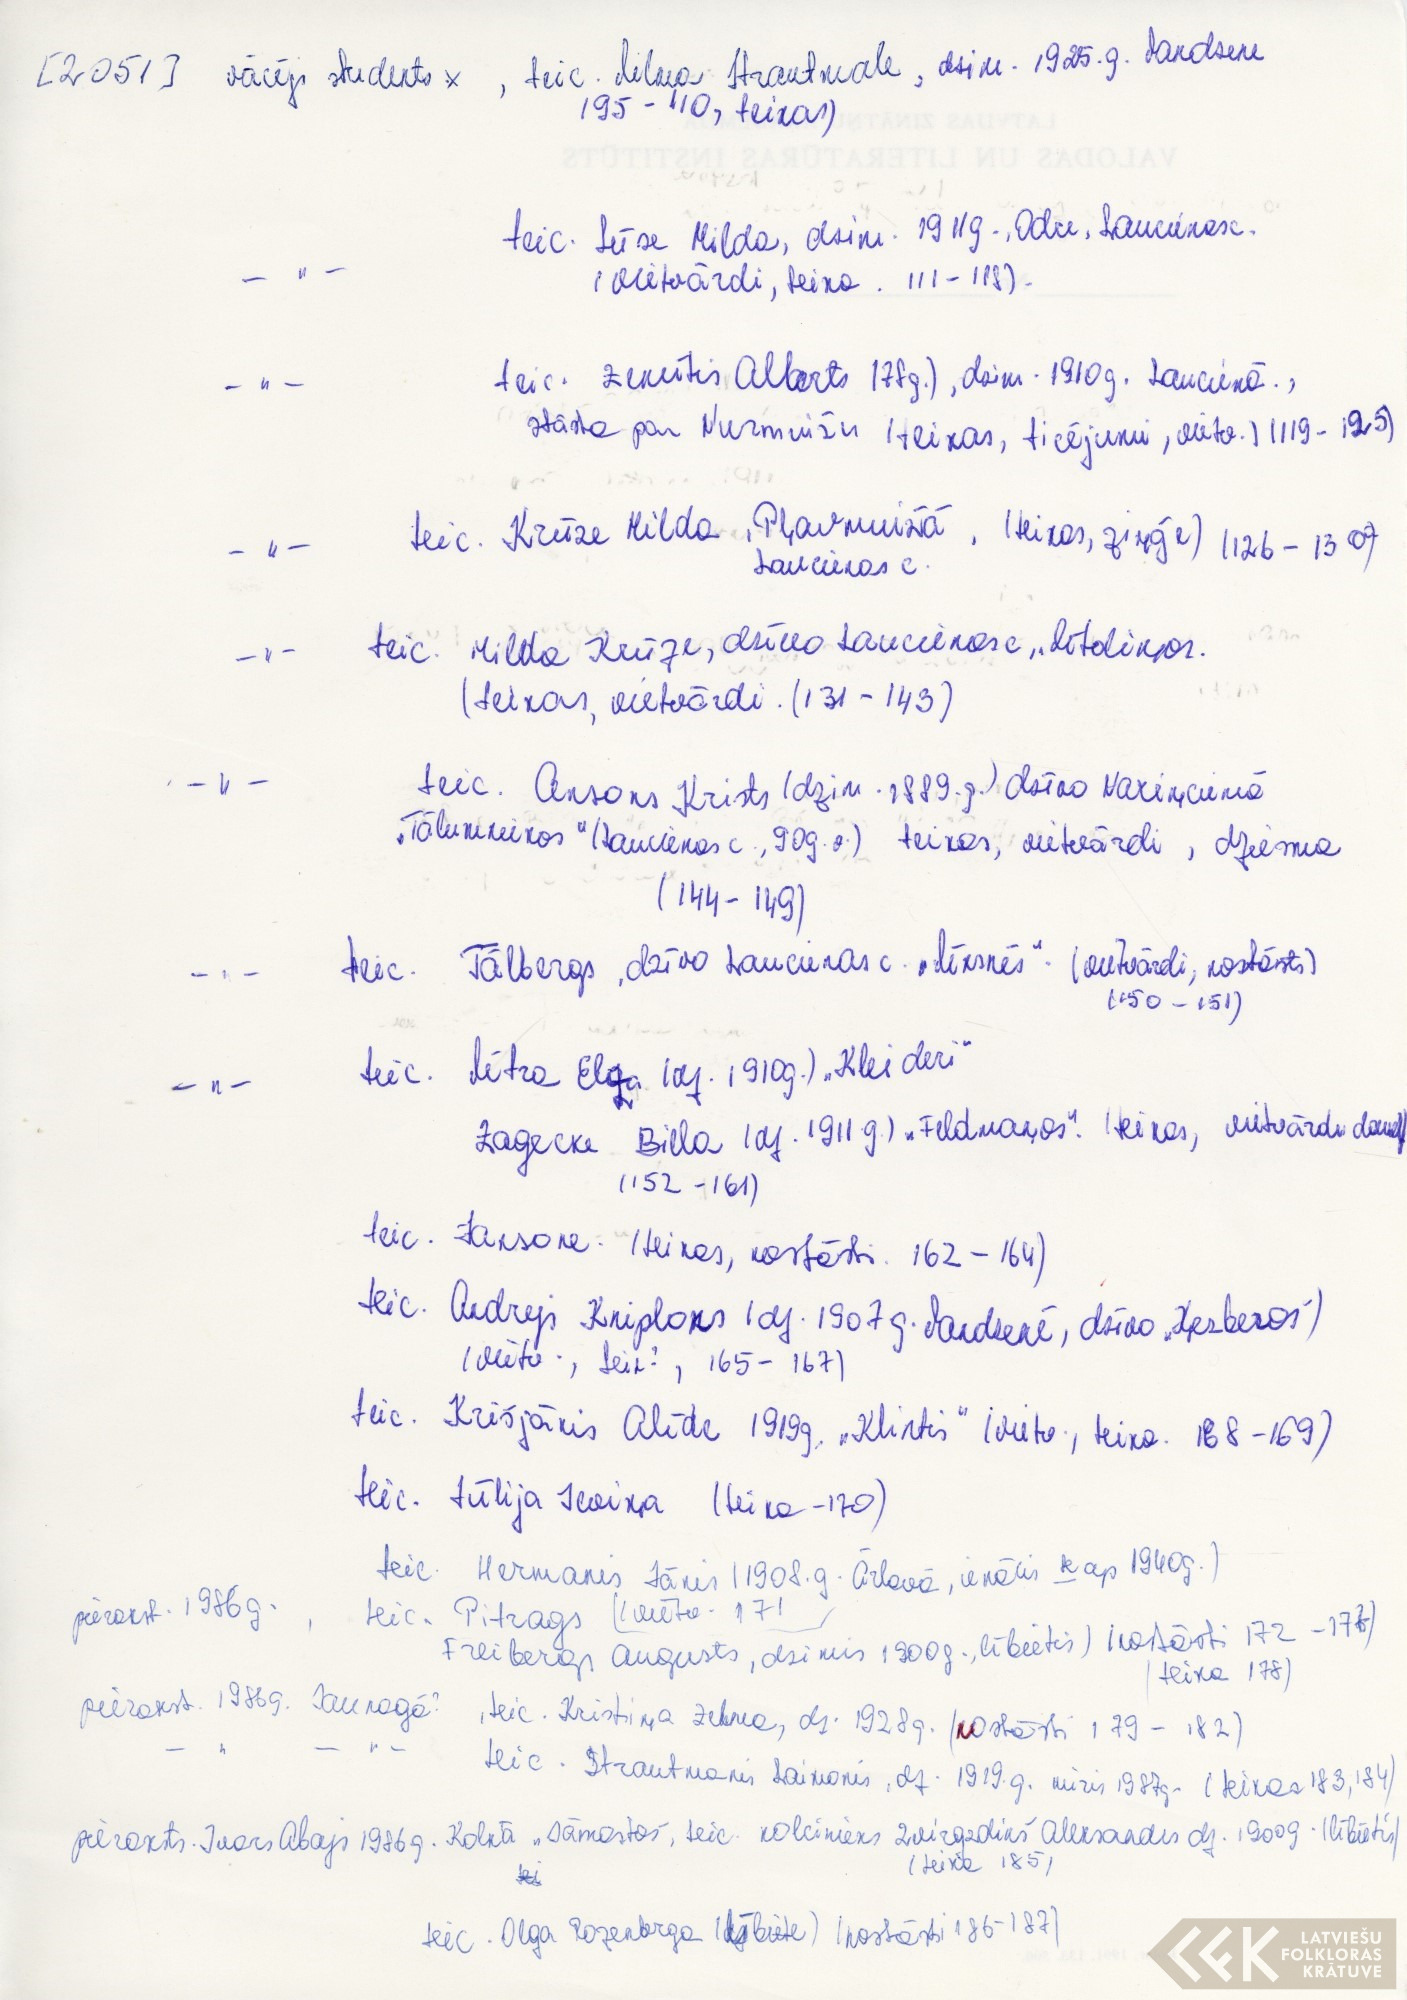 [2051] vācējs students x, teic. Vilma Strautmale, dzim. 1925.g. Vandzene
195-110, teikas)
teic. Lūse Milda, dzim. 1911g., Odre, Laucienas c.
— " — (vietvārdi, teika. 111-118).
— " — teic. Zemītis Alberts (78g.), dzim. 1910g. Laucienā.,
stāsta par Nurmuižu (teikas, ticējumi, vietv.) (119-125)
— " — teic. Krūze Milda, Pļavmuižā, (teikas, ziņģe) (126-130)
Laucienas c.
— " — teic. Milda Krūze, dzīvo Laucienas c.
(teikas, vietvārdi. (131-143)
— " — teic. Ansons Krists (dzim. 1889.g.) dzīvo
(Laucienas c., 90g.v.) teikas, vietvārdi, dziesma
(144-149)
— " — teic. Tālbergs, dzīvo Laucienas c. „Vīksnēs". (vietvārdi, nostāsts)
(150-151)
— " — teic. Vītra Elga (dz. 1910g.) „Kleideri"
Zagecke Billa (dz. 1911g.) „Feldmaņos". (teikas, vietvārdi
(152-161)
teic. Jansone. (teikas, nostāsti. 162-164)
teic. Andrejs Kniploks (dz. 1907g. Vandzenē, dzīvo
(vietv., teik?, 165-167)
teic. Krišjānis Alīde 1919g. „Klintis" (vietv., teika. 168-169)
teic. Jūlija (teika-170)
teic. Hermanis Jānis (1908.g. Ārlavā, ienācis ap 1940g.)
pierakst. 1986g., teic. Pitrags (vietv. 171
Freibergs Augusts, dzimis 1900g., lībietis) (nostāsti 172-177)
(teika 178)
pierakst. 1986g. Jaunagā? , teic. Kristiņa Zelma, dz. 1928g. (nostāsti 179-182)
— " — — " — teic. Strautmanis Laimonis, dz. 1919.g. miris 1987g. (teikas 183, 184)
pieraksts. Ivars Abajs 1986g. Kolkā teic. kolcinieks Zvirgzdiņš Aleksandrs dz. 1900g. (lībietis)
(teika 185)
teic. Olga Rozenberga (lībiete) (nostāsti 186-187)
LATVIEŠU
FOLKLORAS
KRĀTUVE